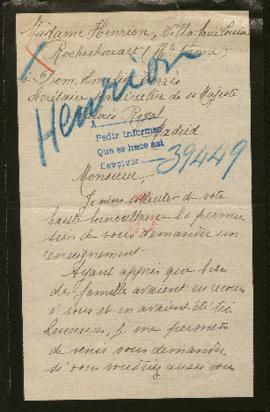 Madame Henrion, Villa
Rochechouart (Hte Vienne)
Henrion
Secrétaire Particulier de sa Majesté
Royal
A
Madrid
Pedir informes
Que se hace así
Devolver
39449
Monsieur,
Je viens solliciter de votre
haute bienveillance la
de vous demander un
renseignement.
Ayant appris que bien
des familles avaient eu recours
à vous et en avaient été très
heureuses, je me permets
de venir vous demander
si vous voudriez aussi vous